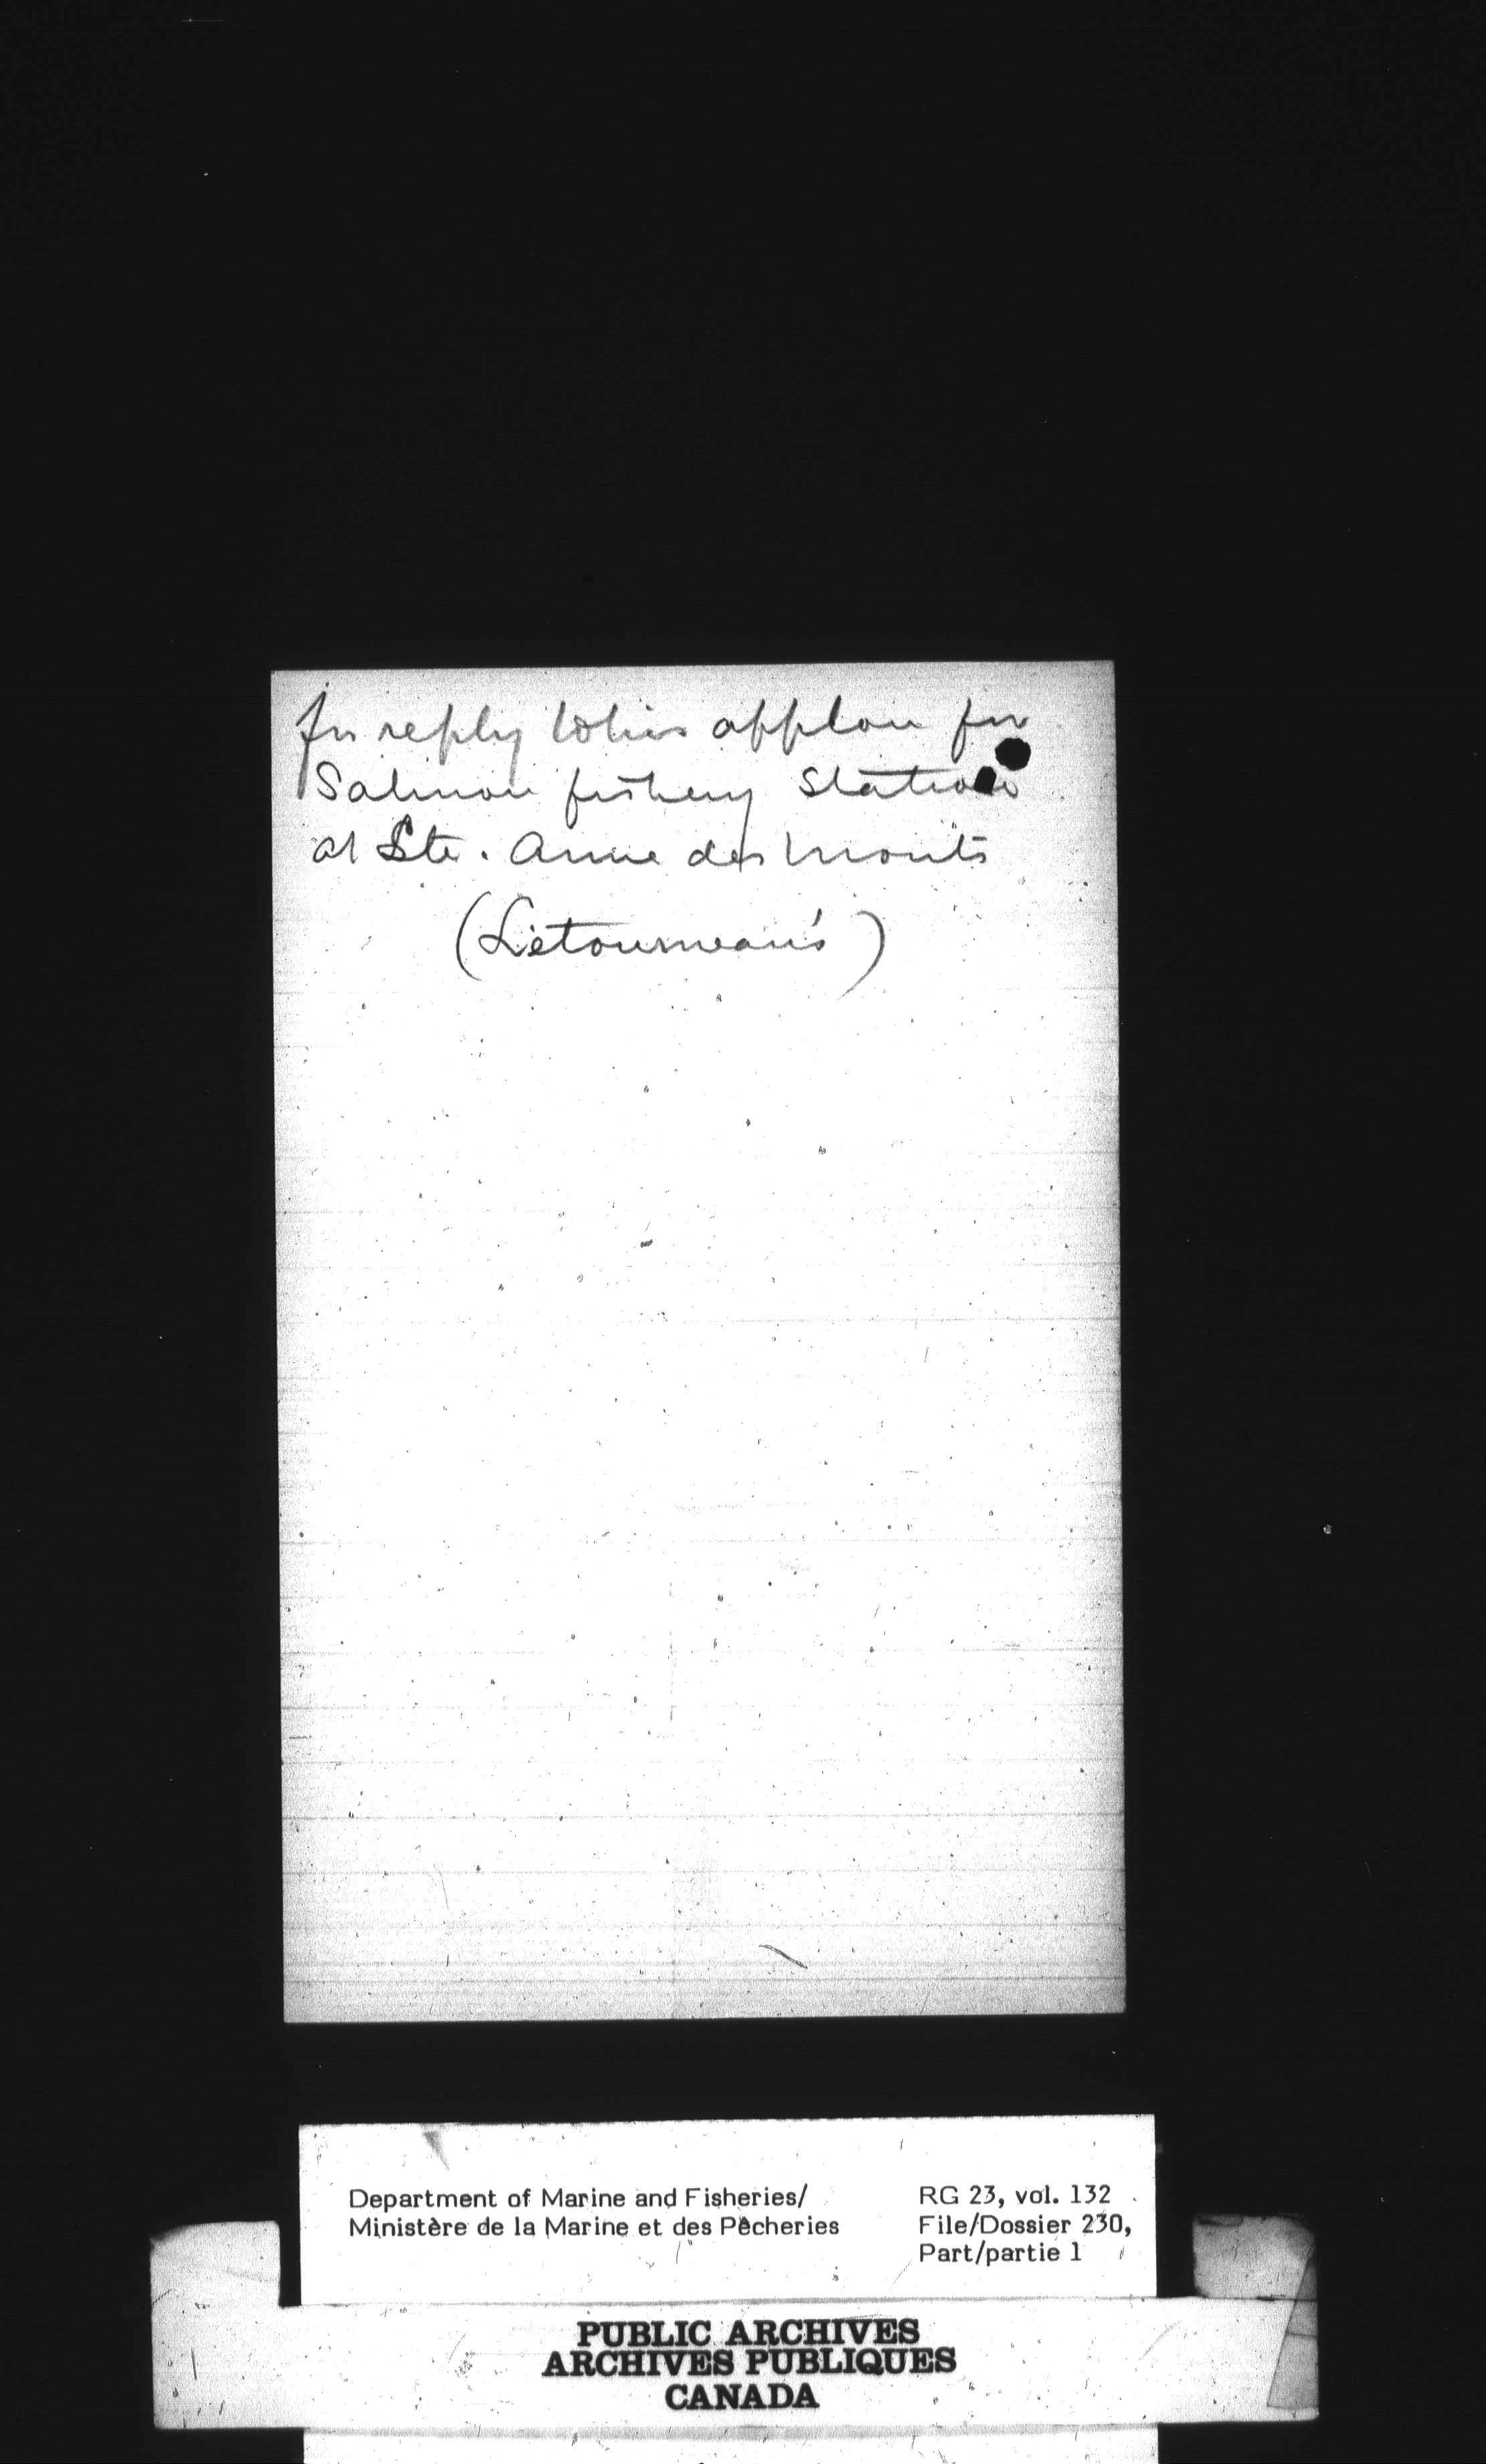 In reply to his applon for
Salmon fishery Station
at Ste. Anne des Monts
(Letourneau's)
Department of Marine and Fisheries/
Ministère de la Marine et des Pêcheries
RG 23, vol. 132
File/Dossier 230,
Part/partie 1
PUBLIC ARCHIVES
ARCHIVES PUBLIQUES
CANADA